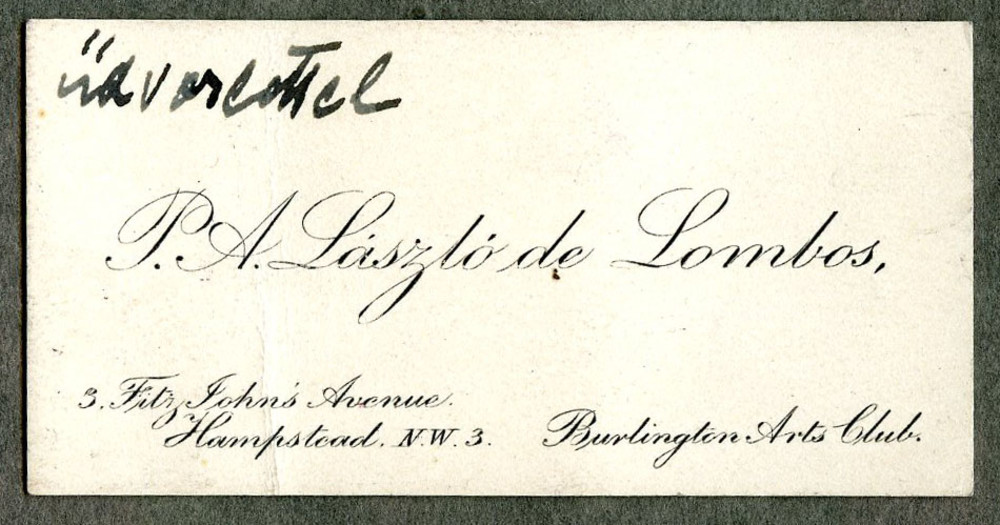 üdvözlettel
P. A. László de Lombos,
3. Fitz John's Avenue.
Hampstead. N.W. 3.
Burlington Arts Club.